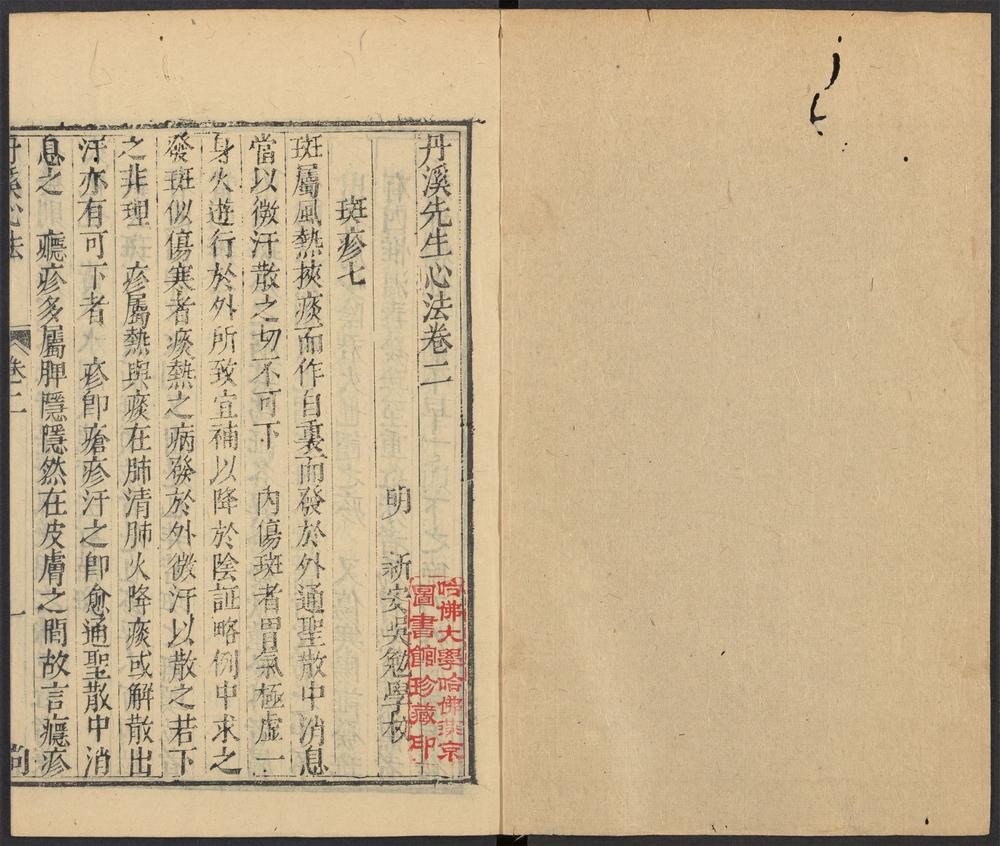 丹溪先生心法卷二
明　新安吳勉學校
斑疹七
斑屬風熱挾痰而作自裏而發於外通聖散中消息
當以微汗散之切不可下　內傷斑者胃氣極虛一
身火遊行於外所致宜補以降於陰証略例中求之
發斑似傷寒者痰熱之病發於外微汗以散之若下
之非理　疹屬熱與痰在肺清肺火降痰或解散出
汗亦有可下者　疹卽瘡疹汗之卽愈通聖散中消
息之　癮疹多屬脾隱隱然在皮膚之間故言癮疹
丹溪心法　卷二　一
哈佛大學哈佛燕京
圖書館珍藏印